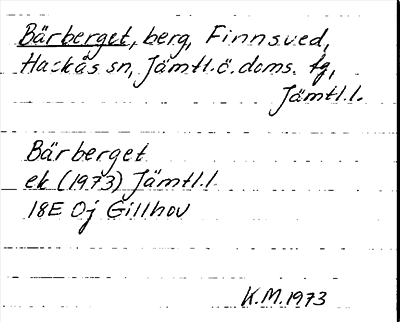 Bärberget, berg, Finnsved,
Hackås sn, Jämtl.ö.doms. tg,
Jämtl.l.
Bärberget
ek (1973) Jämtl.l
18E 0j Gillhov
K.M.1973